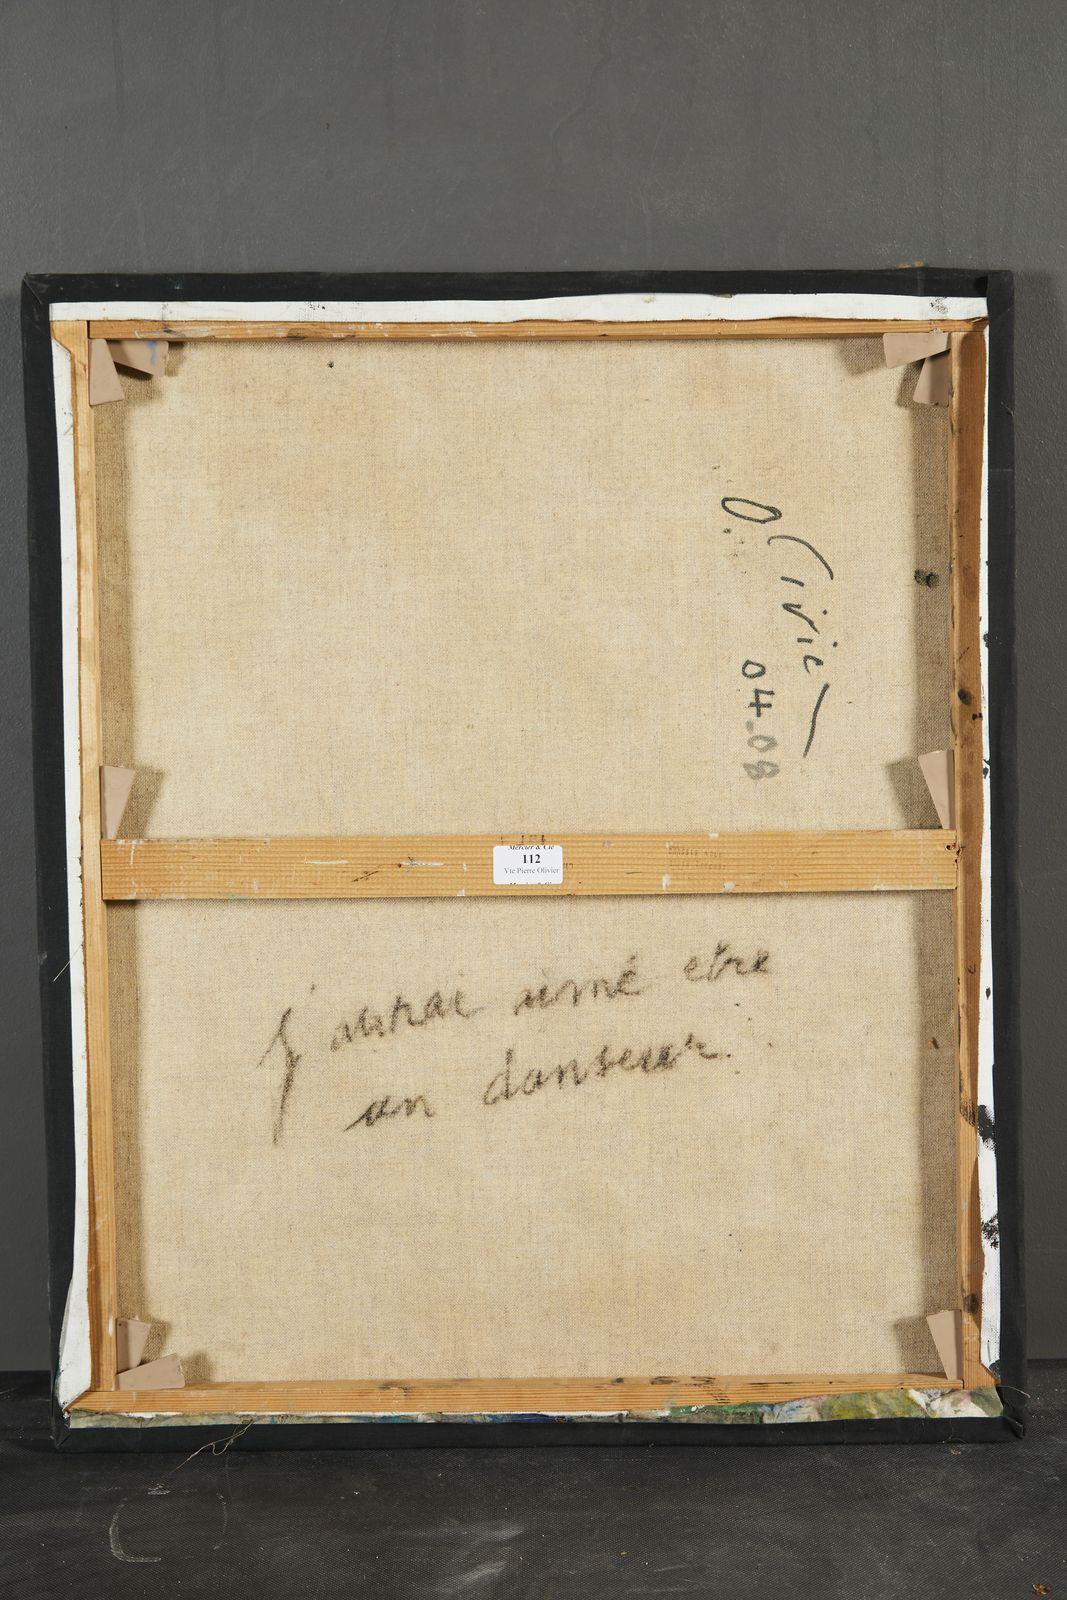 Olivier
04-08
Mercier & Cie
112
Vte Pierre Olivier
J'aurai aimé etre
un danseur.